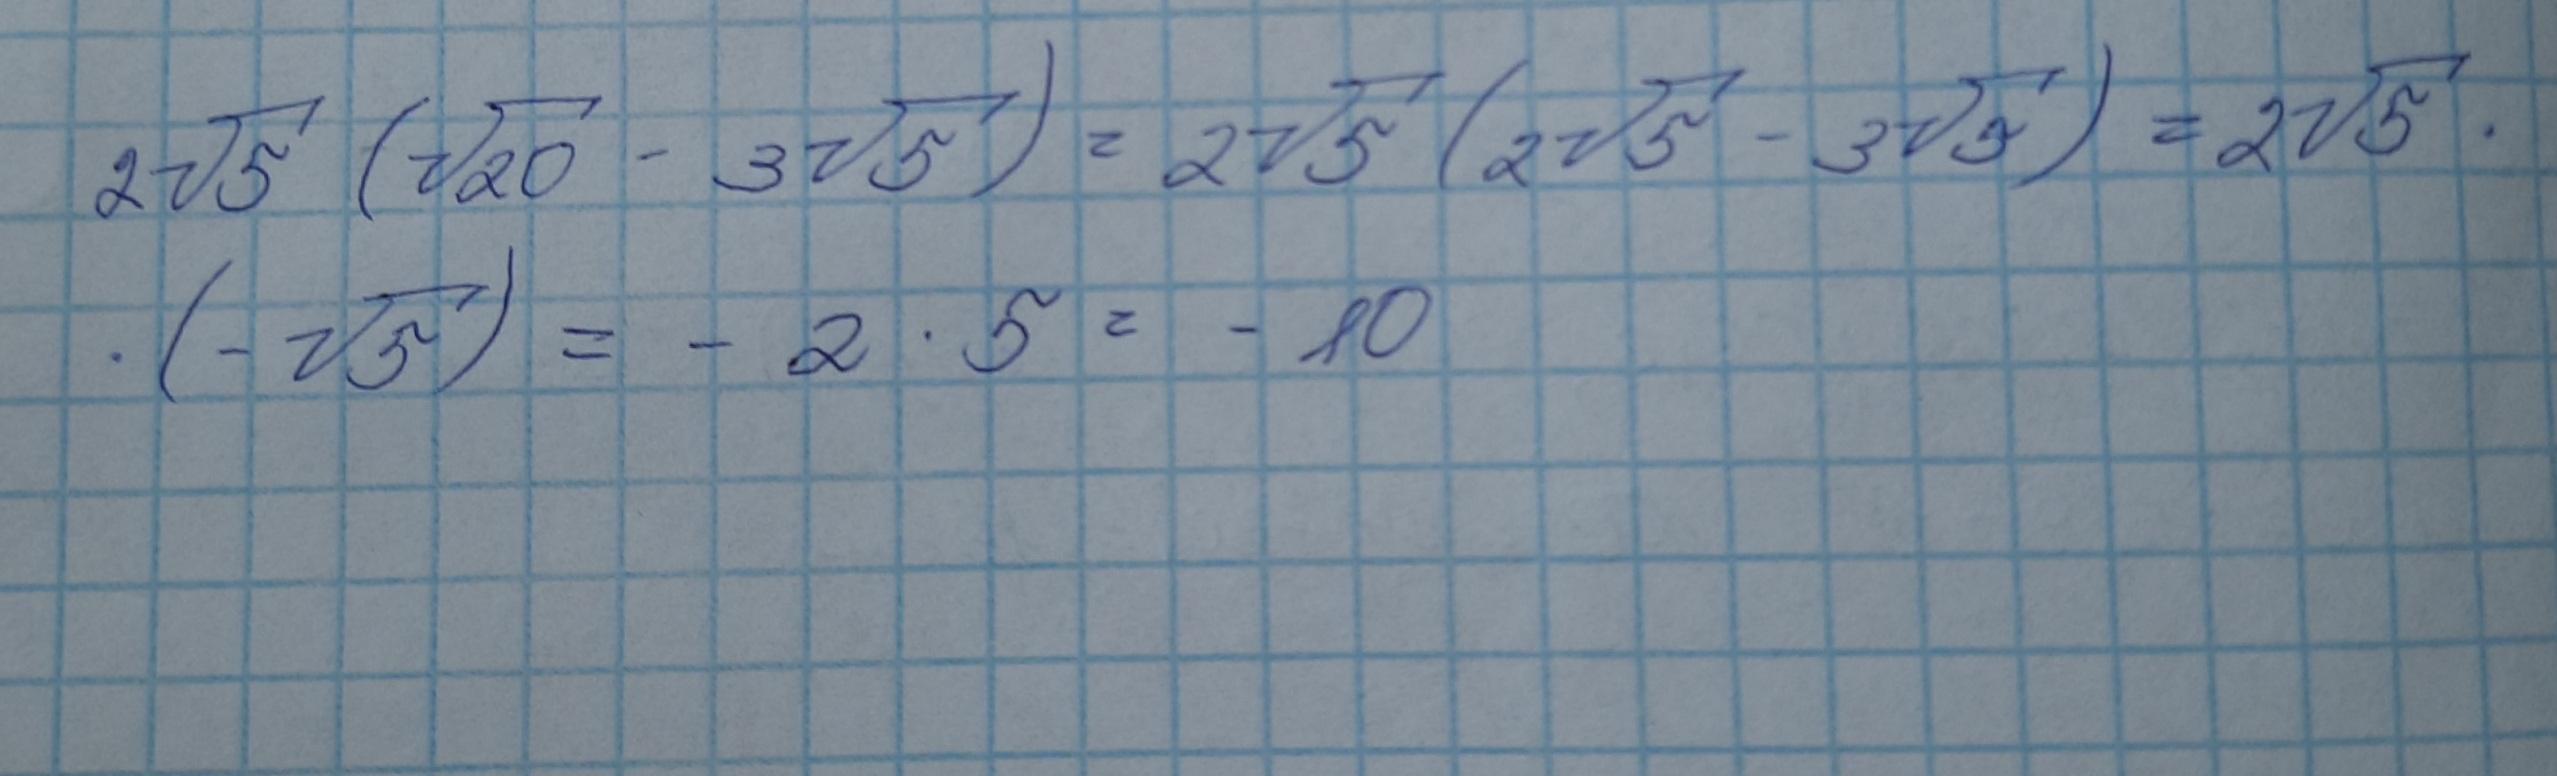 2√5 (√20 - 3√5) = 2√5 (2√5 - 3√5) = 2√5 ·
· (-√5) = - 2 · 5 = - 10